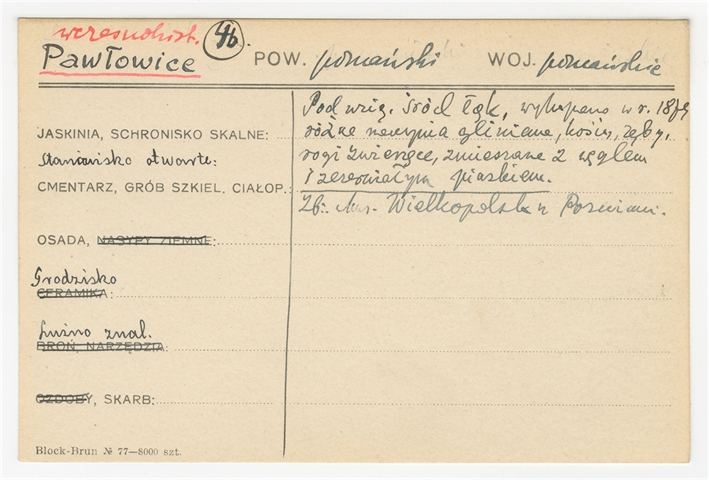 wczesnohist. 4b.
Pawłowice POW. poznański WOJ. poznańskie
Pod wsią, śród łąk, wykopano w r. 18
JASKINIA, SCHRONISKO SKALNE: różne naczynia gliniane, kości, zęby,
Stanowisko otwarte: rogi zwierzęce, zmieszane z węglem
CMENTARZ, GRÓB SZKIEL. CIAŁOP.: i czerwonatym piaskiem.
Zb. Muz. Wielkopolsk. w Poznaniu.
OSADA, NASYPY ZIEMNE:
Grodzisko
CERAMIKA:
Luźno znal.
BROŃ, NARZĘDZIA:
OZDOBY, SKARB:
Block-Brun № 77—8000 szt.